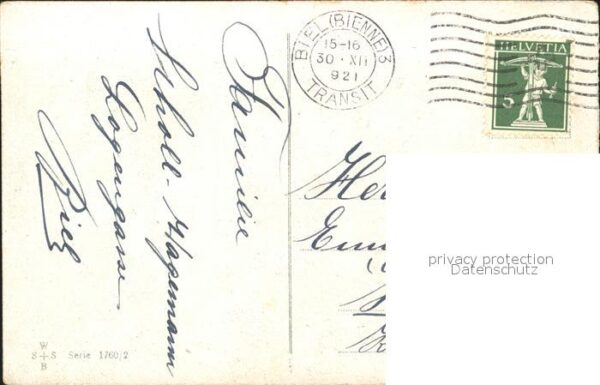 BIEL (BIENNE) 3
15-16
30·XII
921
TRANSIT
HELVETIA
5
Familie
Scholl-Hagemann
Logengasse
Biel
Her
privacy protection
Datenschutz
W
S+S
B
Serie 1760/2